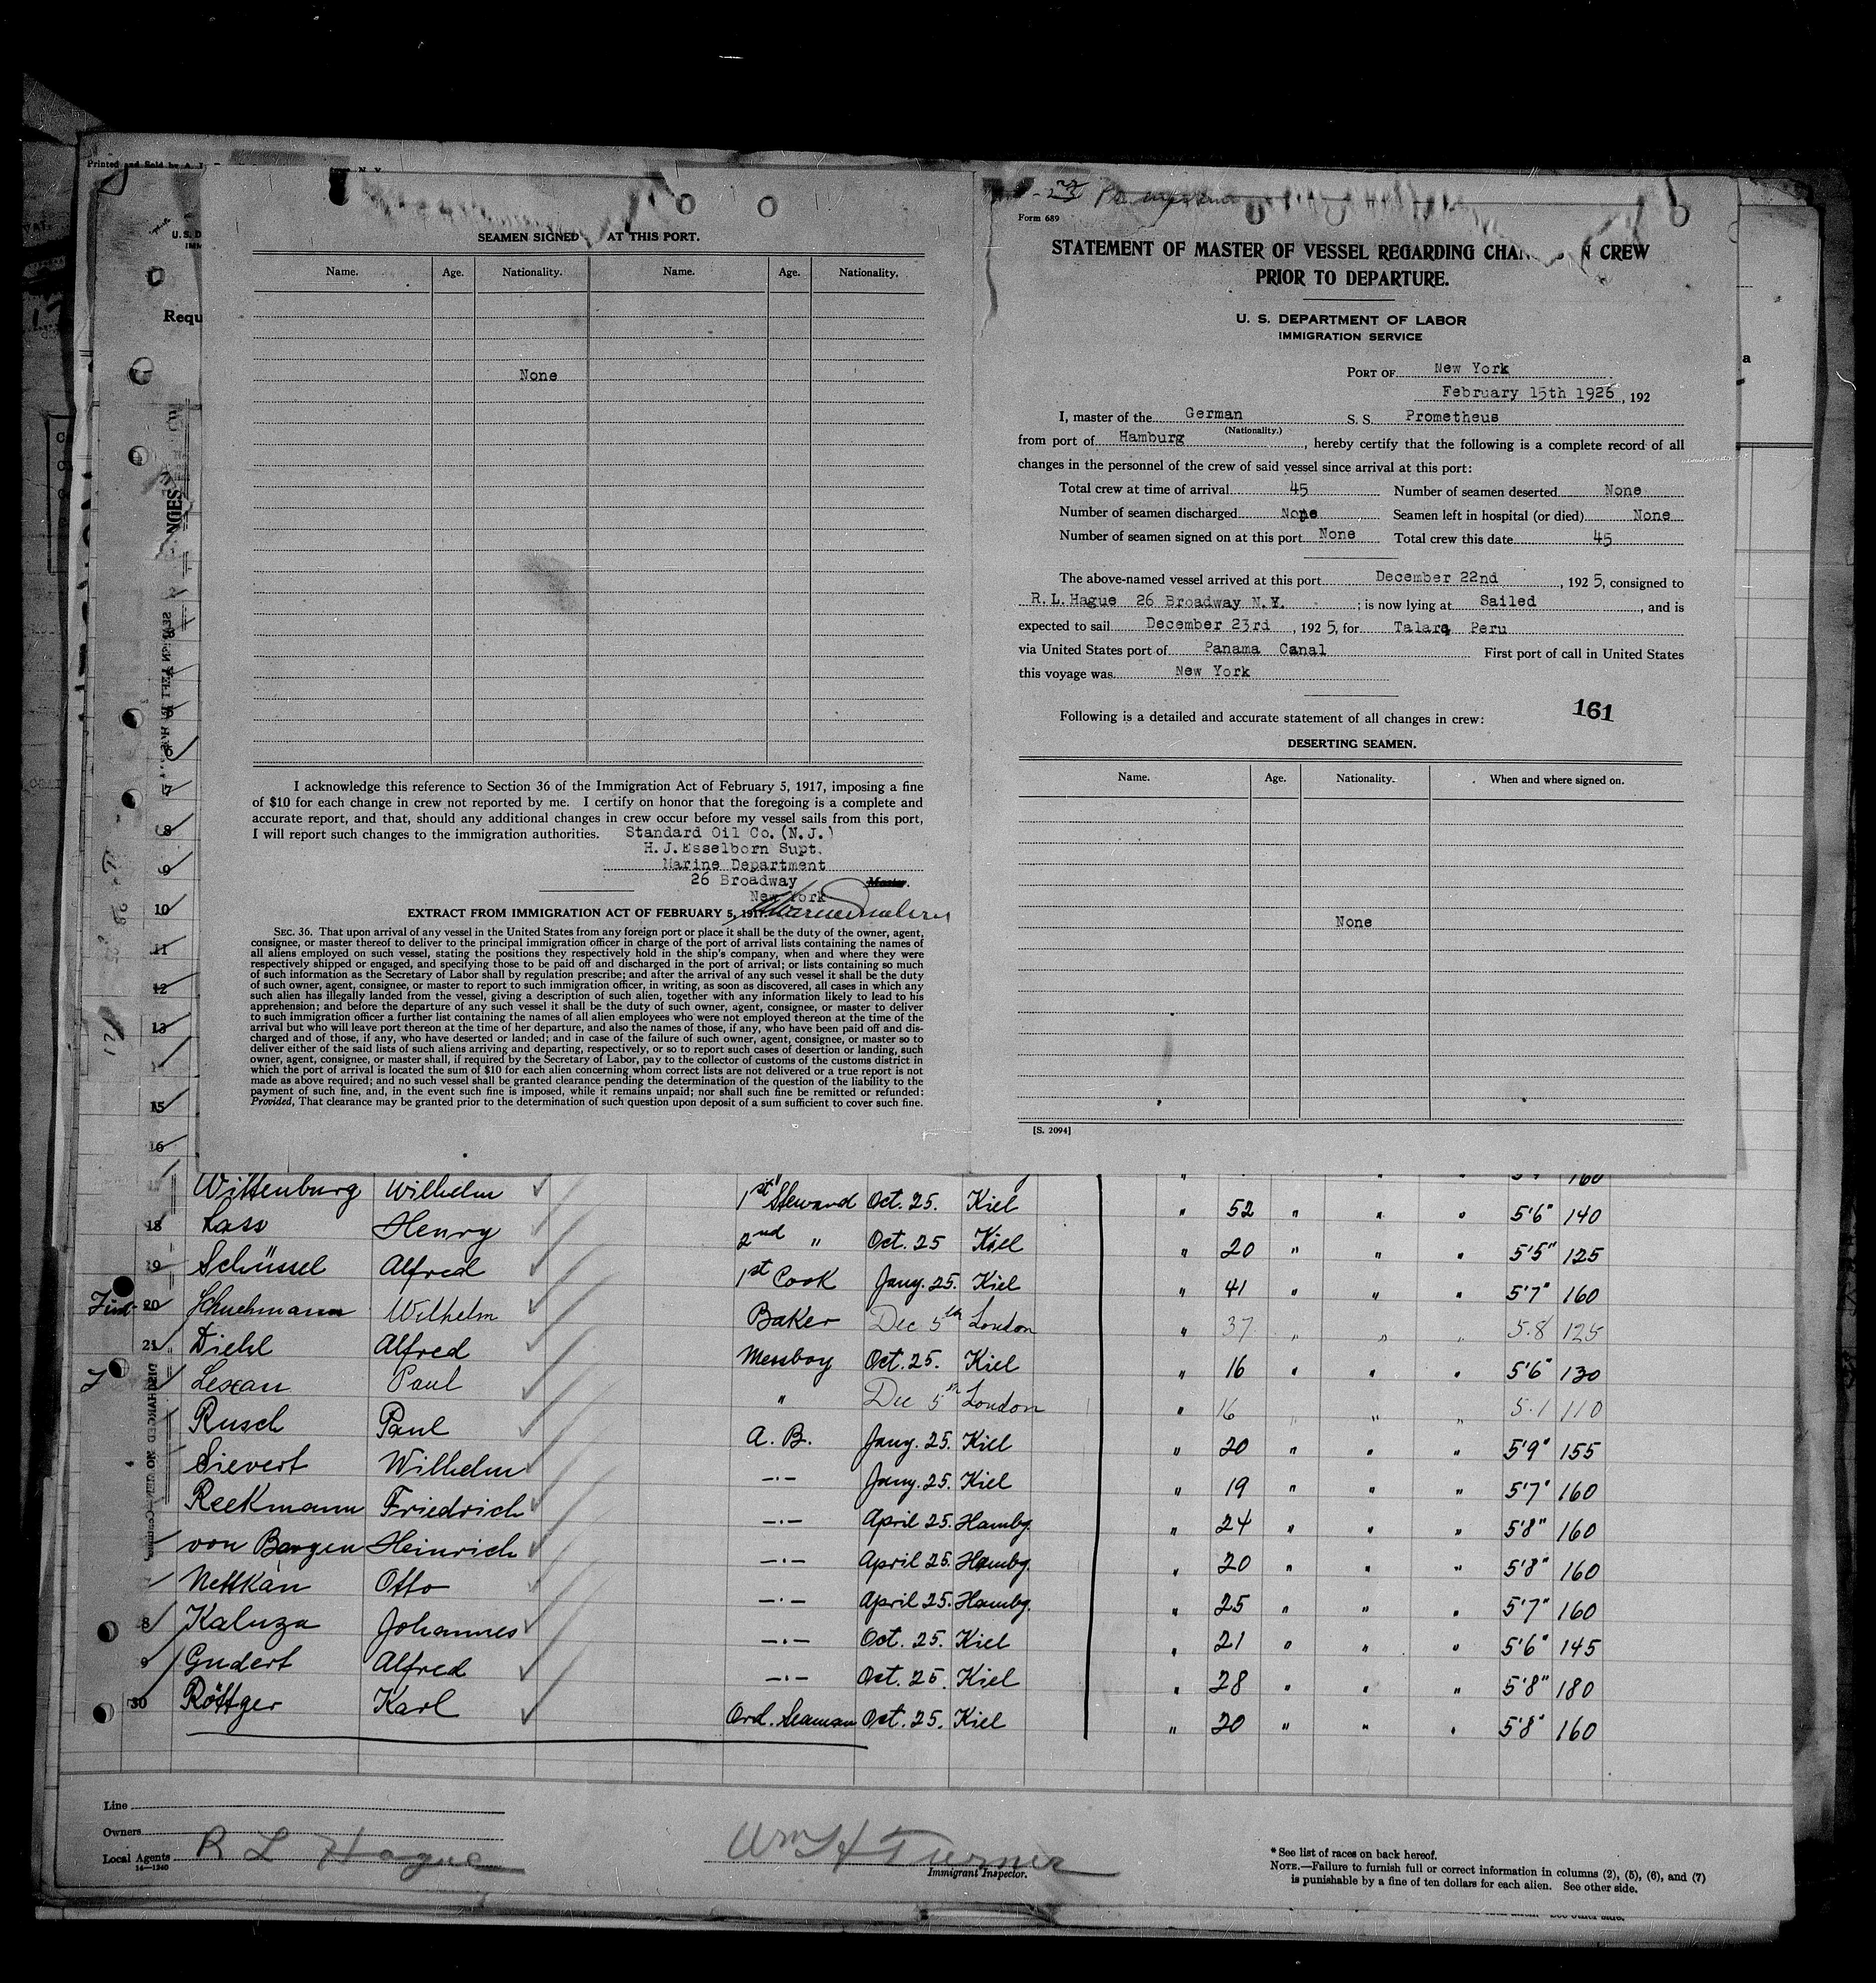 Printed and Sold by A.
N. Y.
U. S. D
IMM
Requ
NGES
SEAMEN SIGNED AT THIS PORT.
Name. Age. Nationality. Name. Age. Nationality.
None
I acknowledge this reference to Section 36 of the Immigration Act of February 5, 1917, imposing a fine
of $10 for each change in crew not reported by me. I certify on honor that the foregoing is a complete and
accurate report, and that, should any additional changes in crew occur before my vessel sails from this port,
I will report such changes to the immigration authorities. Standard Oil Co.(N.J.)
H.J.Esselborn Supt.
Marine Department
26 Broadway Master.
New York
EXTRACT FROM IMMIGRATION ACT OF FEBRUARY 5, 1917.
SEC. 36. That upon arrival of any vessel in the United States from any foreign port or place it shall be the duty of the owner, agent,
consignee, or master thereof to deliver to the principal immigration officer in charge of the port of arrival lists containing the names of
all aliens employed on such vessel, stating the positions they respectively hold in the ship's company, when and where they were
respectively shipped or engaged, and specifying those to be paid off and discharged in the port of arrival; or lists containing so much
of such information as the Secretary of Labor shall by regulation prescribe; and after the arrival of any such vessel it shall be the duty
of such owner, agent, consignee, or master to report to such immigration officer, in writing, as soon as discovered, all cases in which any
such alien has illegally landed from the vessel, giving a description of such alien, together with any information likely to lead to his
apprehension; and before the departure of any such vessel it shall be the duty of such owner, agent, consignee, or master to deliver
to such immigration officer a further list containing the names of all alien employees who were not employed thereon at the time of the
arrival but who will leave port thereon at the time of her departure, and also the names of those, if any, who have been paid off and dis-
charged and of those, if any, who have deserted or landed; and in case of the failure of such owner, agent, consignee, or master so to
deliver either of the said lists of such aliens arriving and departing, respectively, or so to report such cases of desertion or landing, such
owner, agent, consignee, or master shall, if required by the Secretary of Labor, pay to the collector of customs of the customs district in
which the port of arrival is located the sum of $10 for each alien concerning whom correct lists are not delivered or a true report is not
made as above required; and no such vessel shall be granted clearance pending the determination of the question of the liability to the
payment of such fine, and, in the event such fine is imposed, while it remains unpaid; nor shall such fine be remitted or refunded:
Provided, That clearance may be granted prior to the determination of such question upon deposit of a sum sufficient to cover such fine.
Form 689
STATEMENT OF MASTER OF VESSEL REGARDING CHAN N CREW
PRIOR TO DEPARTURE.
U. S. DEPARTMENT OF LABOR
IMMIGRATION SERVICE
PORT OF New York
February 15th 1926, 192
I, master of the German S. S. Prometheus
(Nationality.)
from port of Hamburg, hereby certify that the following is a complete record of all
changes in the personnel of the crew of said vessel since arrival at this port:
Total crew at time of arrival 45 Number of seamen deserted None
Number of seamen discharged None Seamen left in hospital (or died) None
Number of seamen signed on at this port None Total crew this date 45
The above-named vessel arrived at this port December 22nd, 1925, consigned to
R.L.Hague 26 Broadway N.Y.; is now lying at Sailed, and is
expected to sail December 23rd, 1925, for Talara Peru
via United States port of Panama Canal First port of call in United States
this voyage was New York
161
Following is a detailed and accurate statement of all changes in crew:
DESERTING SEAMEN.
Name. Age. Nationality. When and where signed on.
None
[S. 2094]
7
8
9
10
11
12
13
15
16
160
Wittenburg Wilhelm 1st Steward Oct. 25. Kiel " 52 " " " 5'6" 140
18 Lass Henry 2nd " Oct. 25 Kiel " 20 " " " 5'5" 125
19 Schüssel Alfred 1st Cook Jany. 25. Kiel " 41 " " " 5'7" 160
20 Schuehmann Wilhelm Baker Dec 5th London " 37 " " " 5.8 125
21 Diehl Alfred Messboy Oct. 25. Kiel " 16 " " " 5'6" 130
Lexan Paul " Dec 5th London " 16 " " " 5.1 110
Rusch Paul A. B. Jany. 25. Kiel " 20 " " " 5'9" 155
Sievert Wilhelm —·— Jany. 25. Kiel " 19 " " " 5'7" 160
Reekmann Friedrich —·— April 25. Hambg. " 24 " " " 5'8" 160
von Bargen Heinrich —·— April 25. Hambg. " 20 " " " 5'8" 160
Nettkan Otto —·— April 25. Hambg. " 25 " " " 5'7" 160
8 Kaluza Johannes —·— Oct. 25. Kiel " 21 " " " 5'6" 145
9 Gudert Alfred —·— Oct. 25. Kiel " 28 " " " 5'8" 180
30 Röttger Karl Ord. Seaman Oct. 25. Kiel " 20 " " " 5'8" 160
Line
Owners
Local Agents R L Hague
14—1240
Wm H Turner
Immigrant Inspector.
* See list of races on back hereof.
NOTE.—Failure to furnish full or correct information in columns (2), (5), (6), and (7)
is punishable by a fine of ten dollars for each alien. See other side.